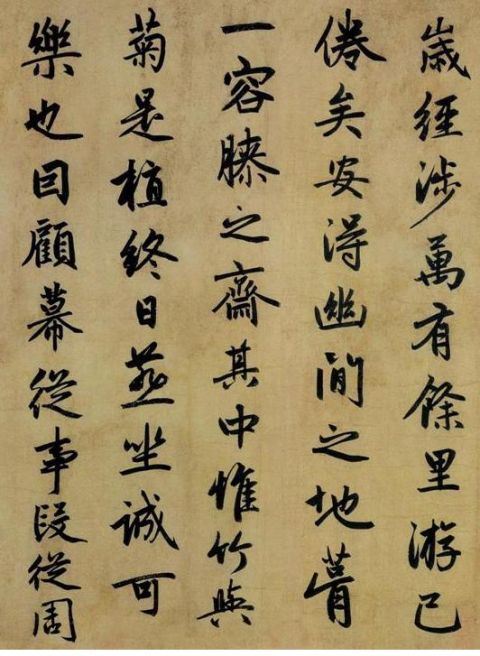 歳經涉萬有餘里游已
倦矣安得幽閒之地葺
一容膝之齋其中惟竹與
菊是植終日燕坐誠可
樂也因顧幕從事段從周